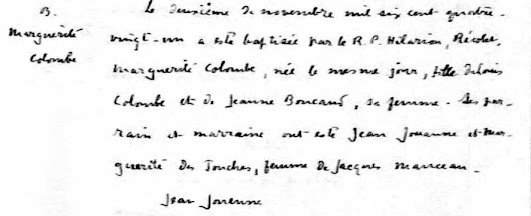 B.
Marguerite
Colombe
Le deuxième de novembre mil six cent quatre-
vingt-un a esté baptisée par le R.P. Hilarion, Récolet,
Marguerite Colombe, née le mesme jour, fille de Louis
Colombe et de Jeanne Boucaud, sa femme. Ses par-
rain et marraine ont esté Jean Jouanne et Mar-
guerite des Touches, femme de Jacques Manceau.
Jean Jouanne